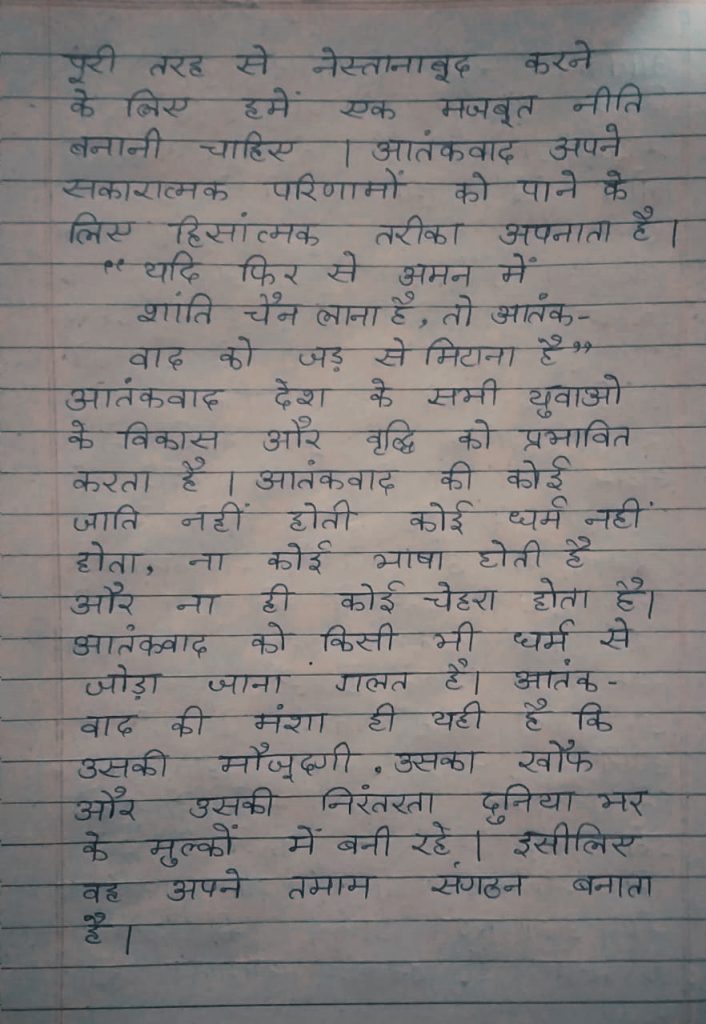 पूरी तरह से नेस्तानाबूद करने
के लिए हमें एक मजबूत नीति
बनानी चाहिए । आतंकवाद अपने
सकारात्मक परिणामों को पाने के
लिए हिसांत्मक तरीका अपनाता है।
“ यदि फिर से अमन में
शांति चैन लाना है, तो आतंक-
वाद को जड़ से मिटाना है”
आतंकवाद देश के सभी युवाओ
के विकास और वृद्धि को प्रभावित
करता है । आतंकवाद की कोई
जाति नहीं होती कोई धर्म नहीं
होता, ना कोई भाषा होती है
और ना ही कोई चेहरा होता है।
आतंकवाद को किसी भी धर्म से
जोड़ा जाना गलत है। आतंक-
वाद की मंशा ही यही है कि
उसकी मौजूदगी , उसका खौफ
और उसकी निरंतरता दुनिया भर
के मुल्कों में बनी रहे । इसीलिए
वह अपने तमाम संगठन बनाता
है ।